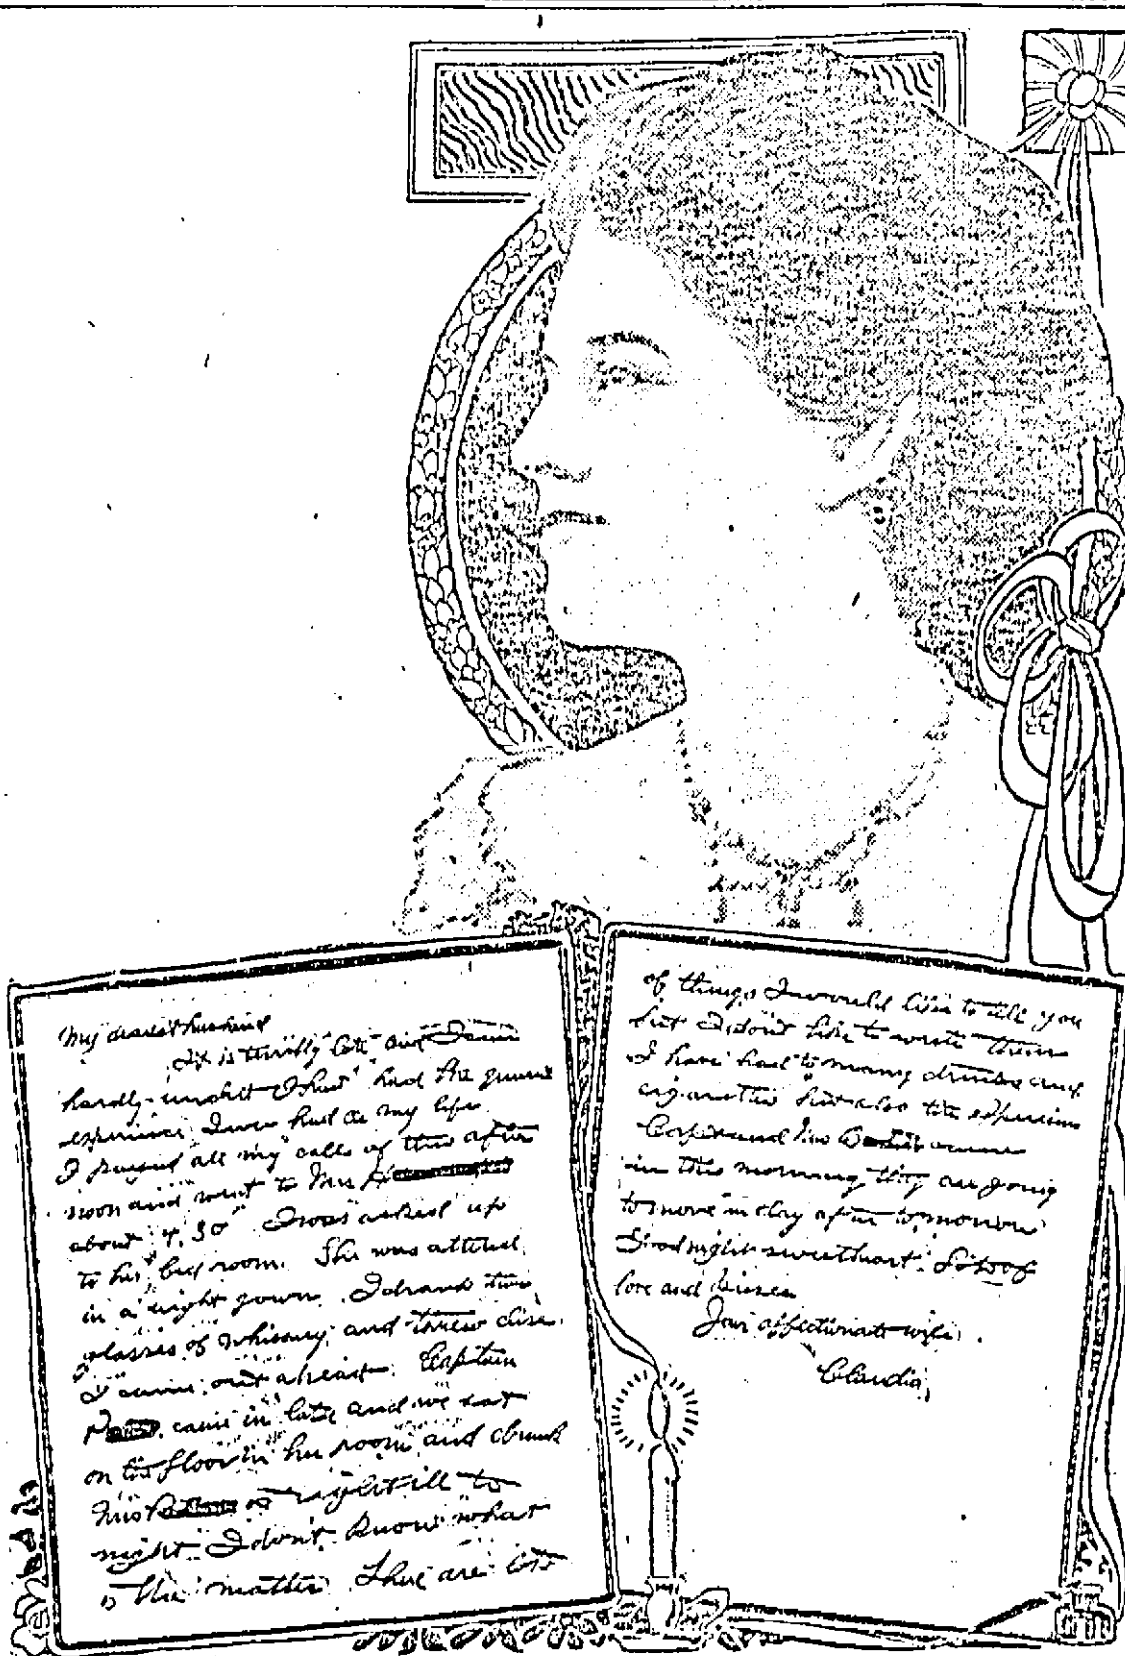 My dearest husband
It is terribly late and I am
hardly what I have had the queerest
experience I ever had in my life
I payed all my calls of this after
noon and went to Mrs
about 4,30 I was asked up
to her bed room. She was attired
in a night gown. I drank two
glasses of whiskey and threw dice.
I came out ahead. Captain
came in late and we sat
on the floor in her room and drunk
Miss is right ill to
night I don't know what
is the matter There are lots
of things I would like to tell you
but I don't like to write them
I have had to many drinks and
cigarettes but also the experience
and Miss came
in this morning they are going
to move in day after tomorrow
Good night sweetheart. Lots of
love and kisses
Your affectionate wife.
Claudia,